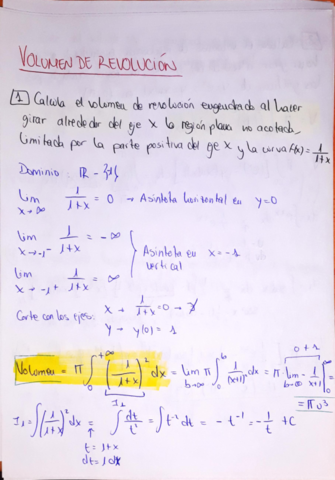 VOLUMEN DE REVOLUCIÓN
1 Calcula el volumen de revolución engendrado al hacer
girar alrededor del eje X la región plana no acotada,
limitada por la parte positiva del eje X y la curva f(x) = 1/(1+x)
Dominio: ℝ - {-1}
lim x→∞ 1/(1+x) = 0 → Asíntota horizontal en y=0
lim x→-1⁻ 1/(1+x) = -∞
Asíntota vertical en x=-1
lim x→-1⁺ 1/(1+x) = ∞
Corte con los ejes: X → 1/(1+x) = 0 → ∄
Y → y(0) = 1
Volumen = π ∫₀^{+∞} (1/(1+x))² dx = lim b→∞ π ∫₀^b 1/(x+1)² dx = π · lim b→∞ - 1/(x+1) |₀^∞ =
0+1
= π u³
I₁
I₁ = ∫ (1/(1+x))² dx = ∫ dt/t² = ∫ t⁻² dt = - t⁻¹ = -1/t + C
t = 1+x
dt = 1 dx